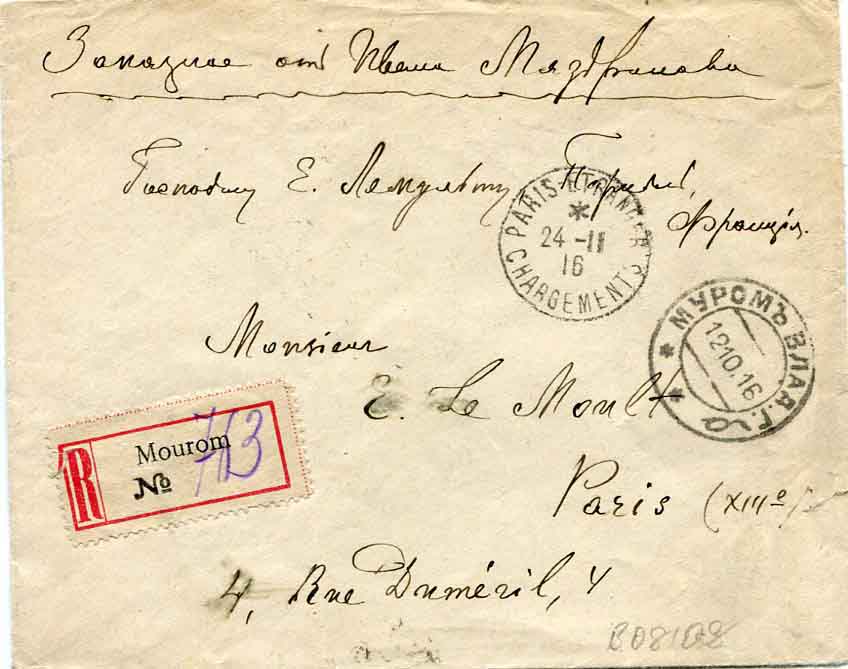 Заказное отъ Ивана
Господину Е. Лемульту Парижъ,
Франція.
PARIS-ETRANGER
*
24 -11
16
CHARGEMENTS
МУРОМЪ ВЛАД.Г.
12 10.16
* *
Monsieur
E. Le Moult
Paris (XIIIe)
4, Rue Duméril, 4
R
Mourom
№ 713